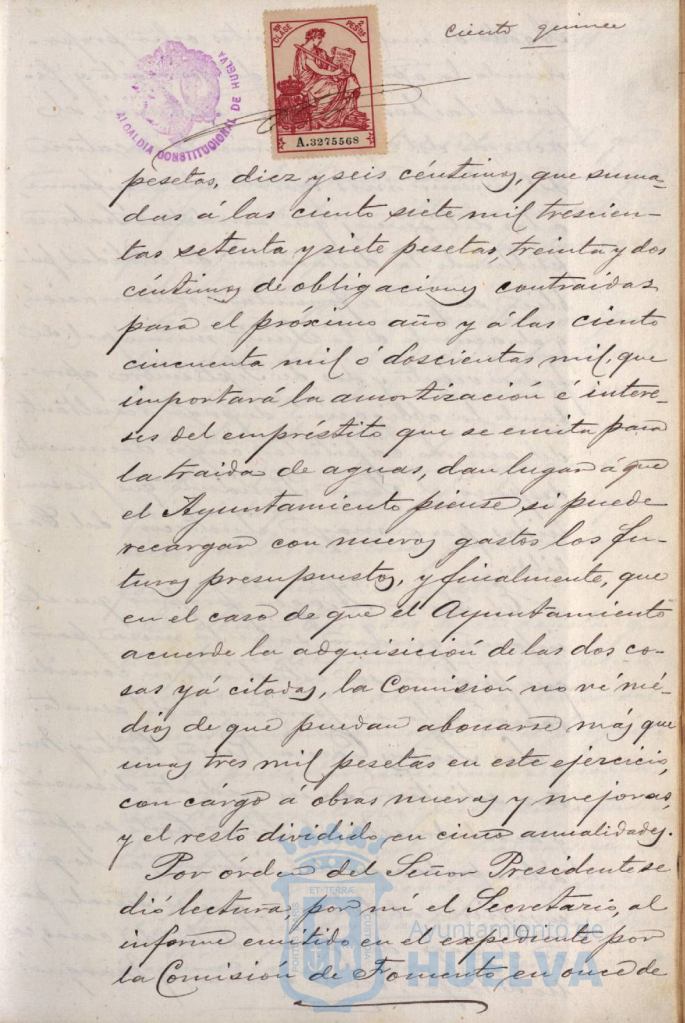 Ciento quince
ALCALDIA CONSTITUCIONAL DE HUELVA
9ª CLASE 2 PESETAS
A.3275568
pesetas, diez y seis céntimos, que suma-
das á las ciento siete mil trescien-
tas setenta y siete pesetas, treinta y dos
céntimos de obligaciones contraidas
para el próximo año y á las ciento
cincuenta mil ó doscientas mil, que
importará la amortización é intere-
ses del empréstito que se emita para
la traida de aguas, dan lugar á que
el Ayuntamiento piense si puede
recargar con nuevos gastos los fu-
turos presupuestos, y finalmente, que
en el caso de que el Ayuntamiento
acuerde la adquisición de las dos co-
sas yá citadas, la Comisión no vé mé-
dios de que puedan abonarse más que
unas tres mil pesetas en este ejercicio,
con cárgo á obras nuevas y mejoras,
y el resto dividido en cinco anualidades.
Por órden del Señor Presidente se
dió lectura, por mí el Secretario, al
informe emitido en el expediente por
la Comisión de Fomento, en once de
PORTUS MARIS ET TERRÆ CUSTODIA
Ayuntamiento de
HUELVA